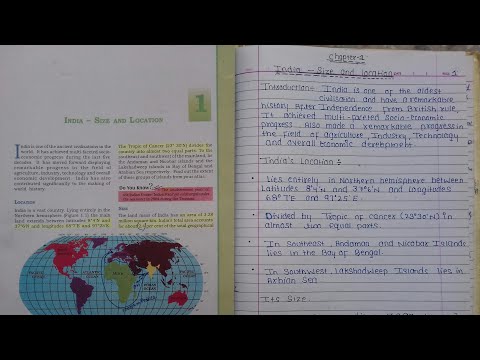 1
INDIA – SIZE AND LOCATION
India is one of the ancient civilisations in the
world. It has achieved multi-faceted socio-
economic progress during the last five
decades. It has moved forward displaying
remarkable progress in the field of
agriculture, industry, technology and overall
economic development. India has also
contributed significantly to the making of
world history.
LOCATION
India is a vast country. Lying entirely in the
Northern hemisphere (Figure 1.1) the main
land extends between latitudes 8°4'N and
37°6'N and longitudes 68°7'E and 97°25'E.
The Tropic of Cancer (23° 30'N) divides the
country into almost two equal parts. To the
southeast and southwest of the mainland, lie
the Andaman and Nicobar islands and the
Lakshadweep islands in Bay of Bengal and
Arabian Sea respectively. Find out the extent
of these groups of islands from your atlas.
Do You Know ?
SIZE
The land mass of India has an area of 3.28
million square km. India's total area accounts
for about 2.4 per cent of the total geographical
Chapter-1
India – Size and location
Introduction- India is one of the oldest
Civilisation and have a remarkable
history. After Independence from British rule,
It achieved multi-faceted Socio-Economic
progress. Also made a remarkable progress in
the field of agriculture, Industry, Technology
and overall Economic development.
India's Location :-
Lies entirely in Northern hemisphere between
Latitudes 8°4'N and 37°6'N and Longitudes
68°7'E and 97°25'E.
Divided by Topic of cancer (23°30'N) in
almost two equal parts.
In Southeast, Andaman and Nicobar Islands
lies in the Bay of Bengal.
In Southwest, Lakshadweep Islands lies in
Arbian Sea
Its Size